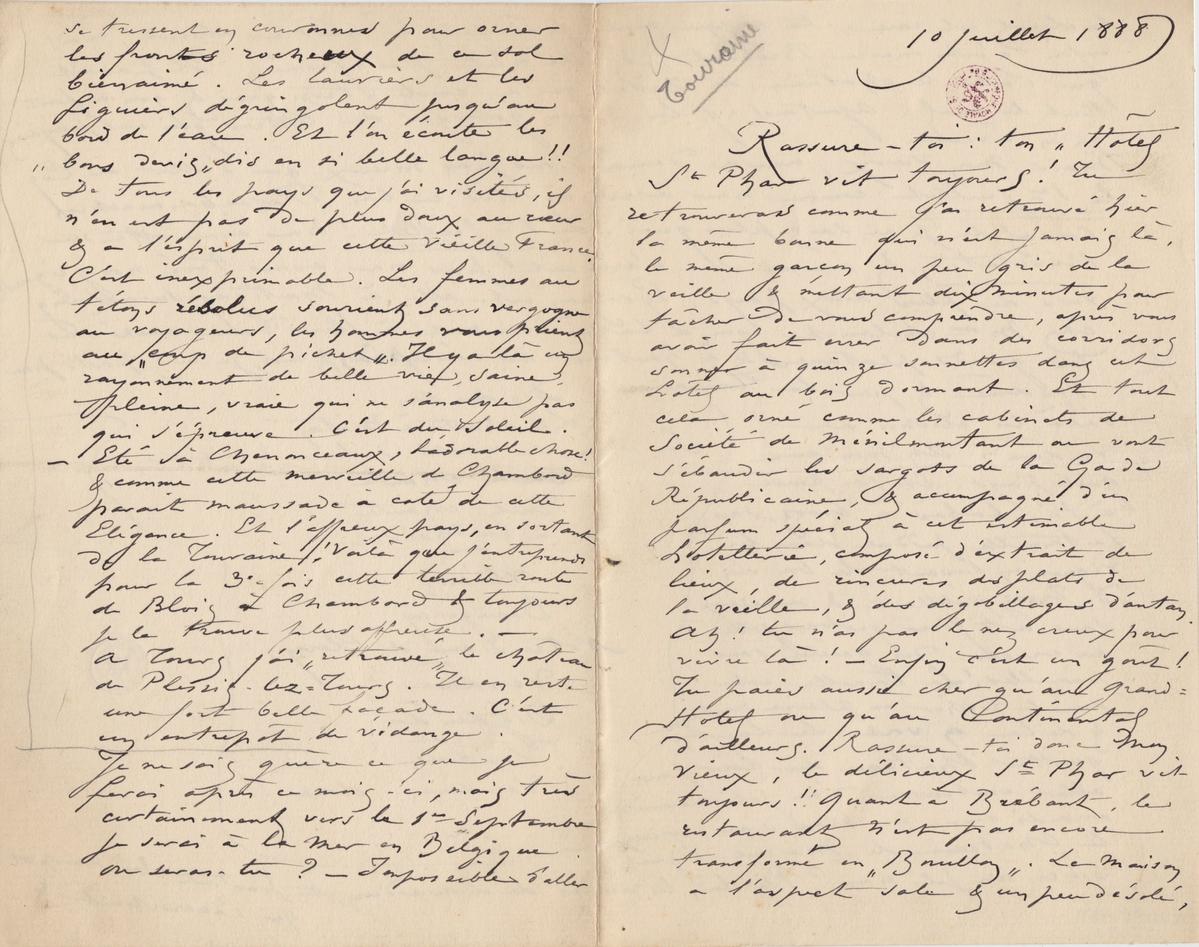 10 Juillet 1888
Touraine
Rassure-toi : ton „ Hôtel
St Phar vit toujours ! Tu
retrouveras comme j'ai retrouvé hier
la même bonne qui n'est jamais là,
le même garçon un peu gris de la
veille & mettant dix minutes pour
tâcher de vous comprendre, après vous
avoir fait errer dans des corridors
sonner à quinze sonnettes dans cet
hotel au bois dormant. Et tout
cela orné comme les cabinets de
Société de Ménilmontant ou vont
s'ébaudir les sergots de la Garde
Républicaine, & accompagné d'un
parfum spécial à cet estimable
hotellerie, composé d'extrait de
lieux, de rinçures des plats de
la veille, & des dégobillages d'antan.
Ah ! tu n'as pas le nez creux pour
vivre là ! — Enfin c'est un goût !
Tu paies aussi cher qu'au Grand=
Hotel ou qu'au Continental
d'ailleurs. Rassure-toi donc mon
vieux, le délicieux St Phar vit
toujours !! Quant à Brébant, le
restaurant n'est pas encore
transformé en „Bouillon„. La maison
a l'aspect sale & un peu désolé,
se tressent en couronnes pour orner
les fronts rocheux de ce sol
bienaimé. Les lauriers et les
figuiers dégringolent jusqu'au
bord de l'eau. Et l'on écoute les
„ bons deviz„ dis en si belle langue !!
De tous les pays que j'ai visités, il
n'en est pas de plus doux au cœur
& a l'esprit que cette vieille France.
C'est inexprimable. Les femmes au
tetons résolus sourient sans vergogne
au voyageurs, les hommes vous prient
au „coup de pichet„. Il y a là un
rayonnement de belle vie, saine,
pleine, vraie qui ne s'analyse pas
qui s'épreuve. C'est du Soleil.
— Eté à Chenonceaux, l'adorable chose !
& comme cette merveille de Chambord
parait maussade à coté de cette
Elégance. Et l'affreux pays, en sortant
de la Touraine ! Voilà que j'entreprends
pour la 3e fois cette terrible route
de Blois à Chambord & toujours
je la trouve plus affreuse. —
A Tours j'ai „retrouvé„ le château
de Plessis-lez=Tours. Il en reste
une fort belle façade. C'est
un entrepot de vidange.
Je ne sais guère ce que je
ferai après ce mois-ci, mais très
certainement vers le 1er Septembre
je serai à la mer en Belgique.
ou seras-tu ? — Impossible d'aller